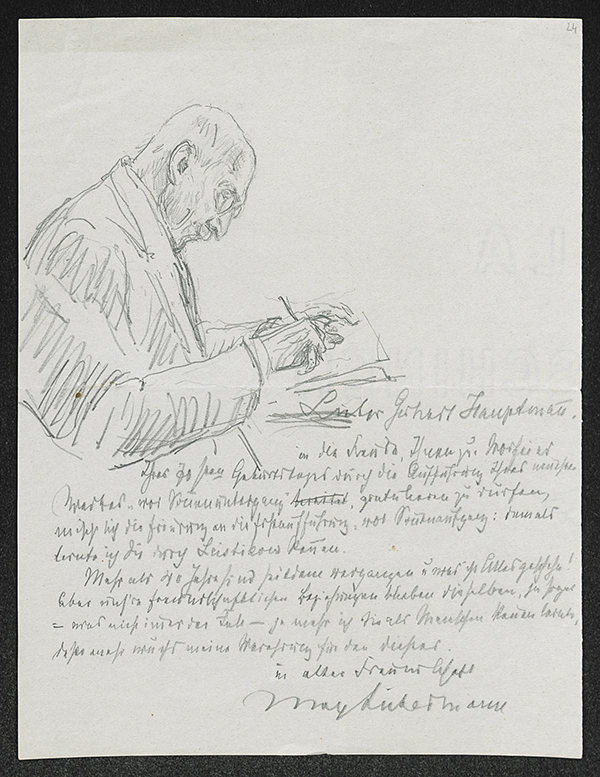 24
Lieber Gerhart Hauptmann.
in die Freude, Ihnen zur Vorfeier
Ihres 70 sten Geburtstages durch die Aufführung Ihres neuesten
Werkes „vor Sonnenuntergang" gratulieren zu dürfen,
mischt sich die Erinnerung an die Erstaufführung „vor Sonnenaufgang": damals
lernte ich Sie durch Leistikow kennen.
Mehr als 40 Jahre sind seitdem vergangen u was ist Alles geschehn!
Aber unsre freundschaftlichen Beziehungen blieben dieselben, im
– was nicht immer der Fall – je mehr ich Sie als Menschen kennen lernte,
desto mehr wuchs meine Verehrung für den Dichter.
in alter Freundschaft
Max Liebermann